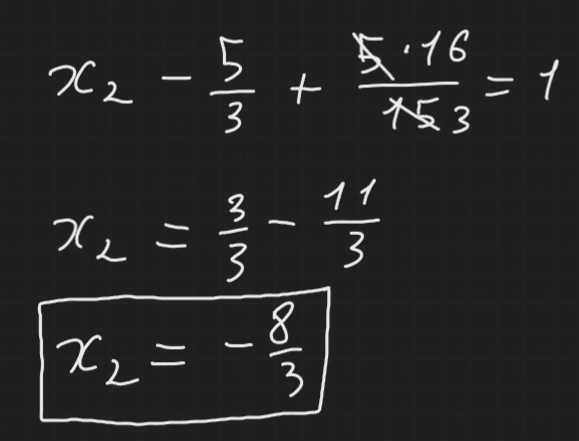 x₂ - 5/3 + 5·16/15 3 = 1
x₂ = 3/3 - 11/3
x₂ = -8/3